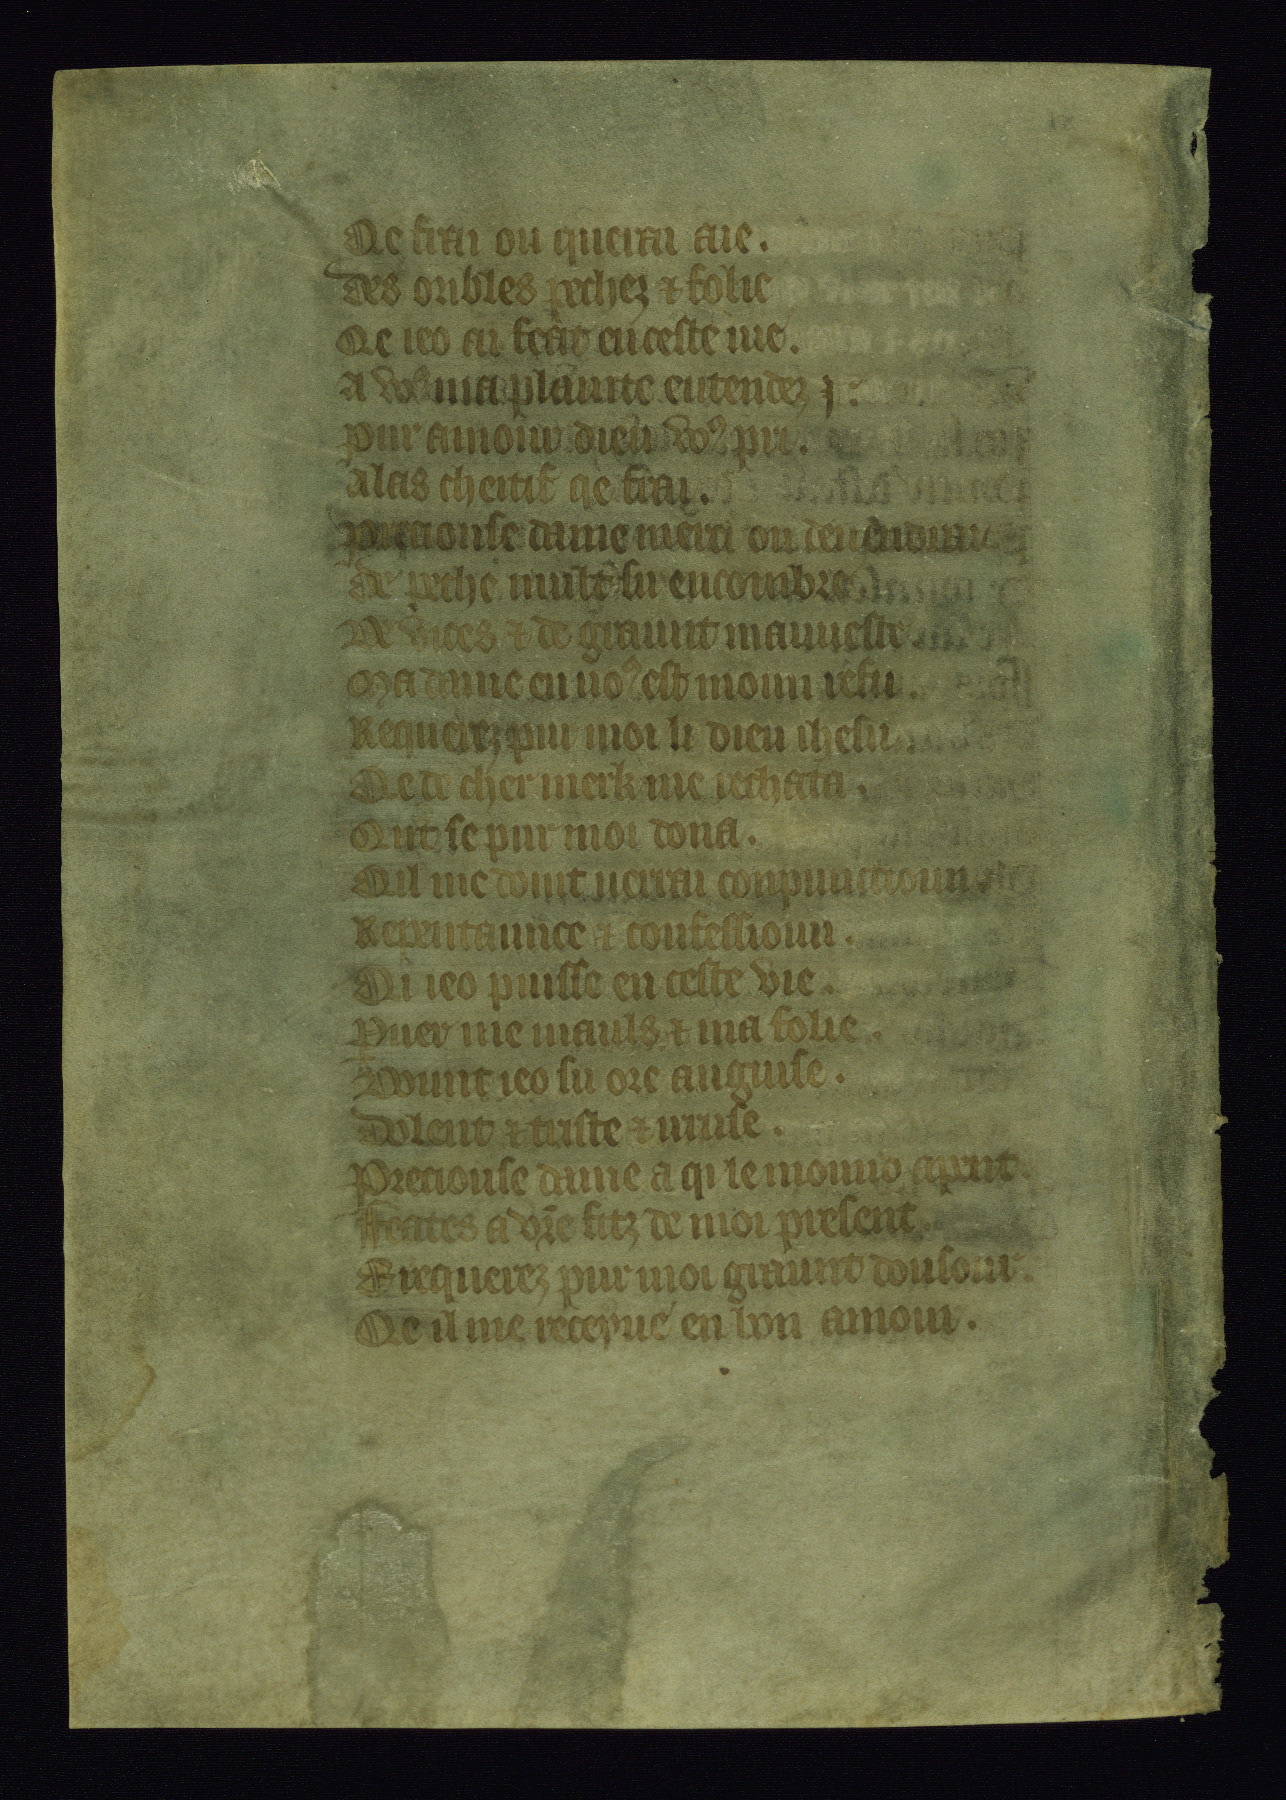 Qe frai ou querrai aie.
Des oribles pechez & folie
Qe ieo ai feat en ceste vie.
A vo⁹ ma plainte entendez
pur amour dieu vo⁹ pri.
Alas cheitif qe frai.
Preciouse dame merci ou
de peche mult su encombre
De vices & de graunt mauueste
Ma dame en uo⁹ est moun refu.
Requerez pur moi li dieu ihesu
Qe de cher merk me rechata.
Qunt se pur moi dona.
Qil me doint uerrai conpunctioun.
Repentaunce & confessioun.
Qi ieo puisse en ceste vie.
Puer me mauls & ma folie.
Dount ieo su ore anguise.
Dolent & triste &
Preciouse dame a qi le mound apent.
Feates a vr̃e fitz de moi present.
E requerez pur moi graunt dousour.
Qe il me receyue en son amour.